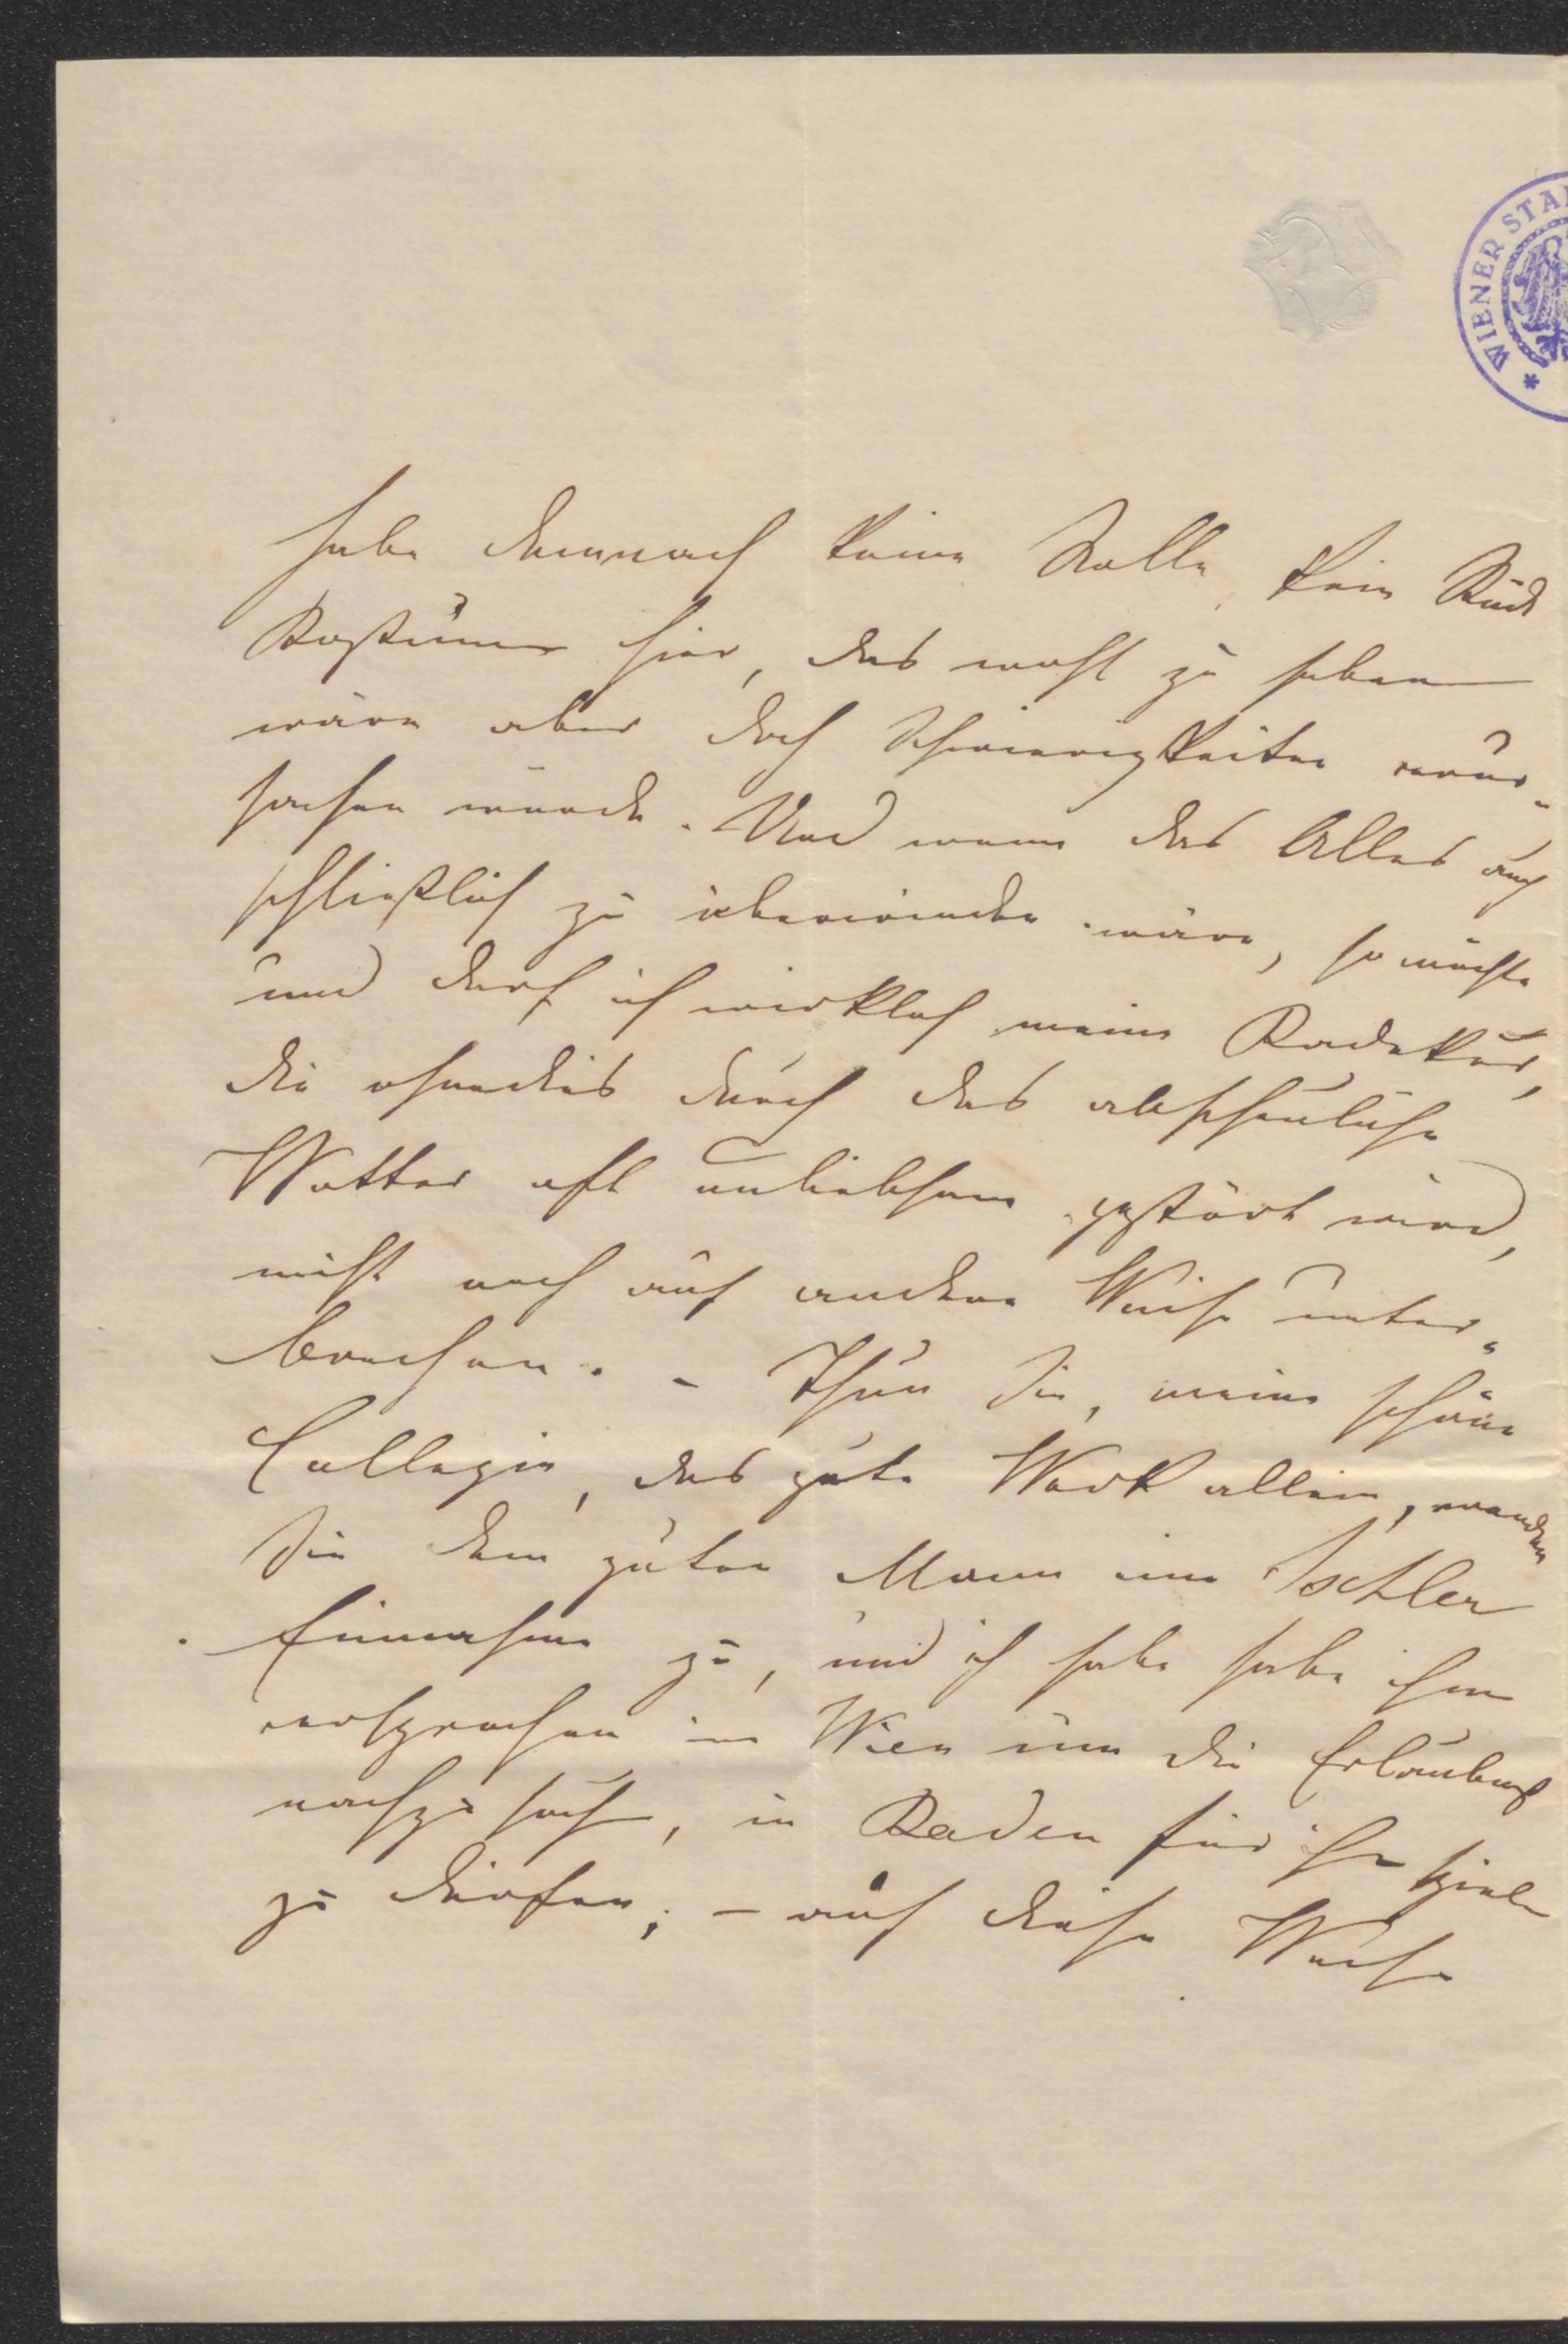 WIENER STA
habe demnach keine Rolle, kein Stück
Kostüme hier, das wohl zu haben
wäre aber doch Schwierigkeiten verur-
sachen würde. Und wenn das Alles auch
schließlich zu überwinden wäre, so möchte
und darf ich wirklich meine Badekur,
die ohnedies durch das abscheuliche
Wetter oft unliebsam gestört wird,
nicht noch auf andere Weise unter-
brechen. - Thun Sie, meine schöne
Collegin, das gute Werk allein, wenden
Sie dem guten Mann eine Ischler
Einnahme zu, und ich habe habe ihm
versprochen in Wien um die Erlaubniß
nachzusuchen, in Baden für ihn spielen
zu dürfen; - auf diese Weise